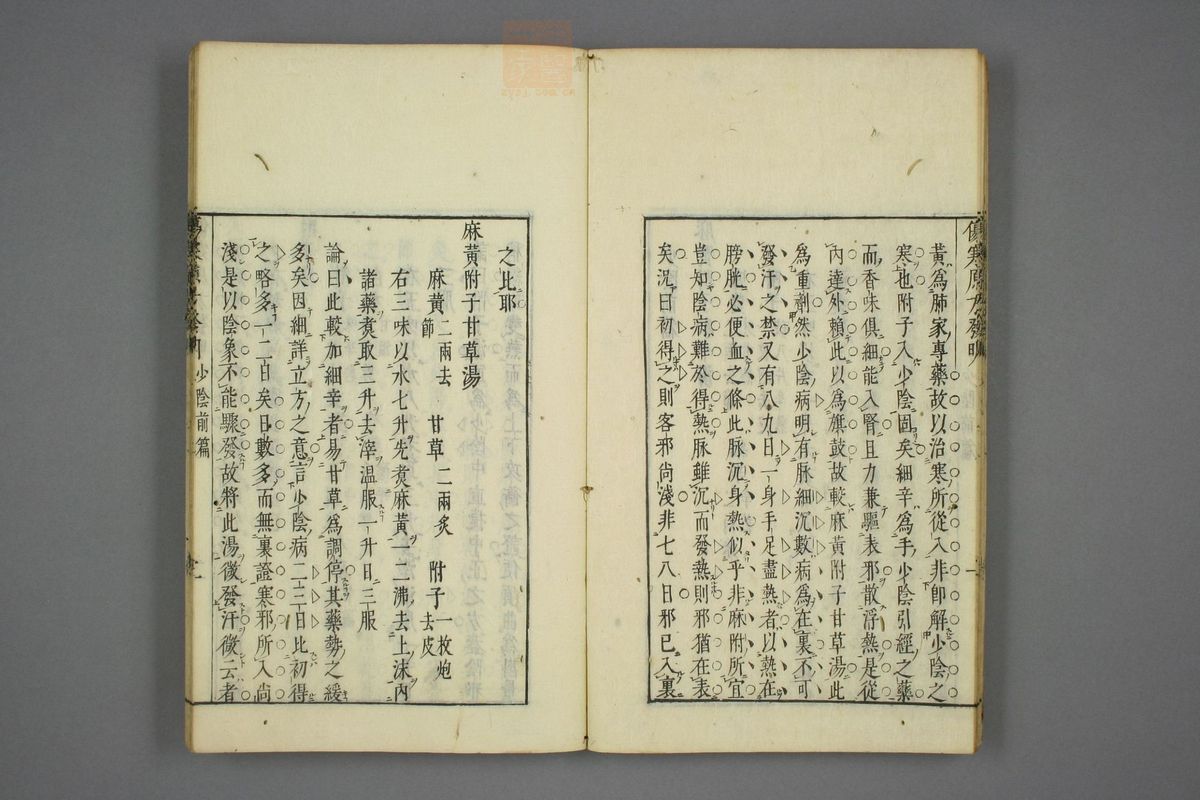 黃為肺家專藥故以治寒所從入非卽解少陰之
寒也附子入少陰固矣細辛為手少陰引經之藥
而香味俱細能入腎且力兼驅表邪散浮熱是從
內達外賴此以為旗鼓故較麻黃附子甘草湯此
為重劑然少陰病明有脉細沉數病為在裏不可
發汗之禁又有八九日一身手足盡熱者以熱在
膀胱必便血之條此脉沉身熱似乎非麻附所宜
豈知陰病難於得熱脉雖沉而發熱則邪猶在表
矣況曰初得之則客邪尚淺非七八日邪已入裏
之比耶
麻黃附子甘草湯
麻黃二兩去節 甘草二兩炙 附子一枚炮去皮
右三味以水七升先煑麻黃一二沸去上沫內
諸藥煑取三升去滓温服一升日三服
論曰此較加細辛者易甘草為調停其藥勢之緩
多矣因細詳立方之意言少陰病二三日比初得
之略多一二日矣日數多而無裏證寒邪所入尚
淺是以陰象不能驟發故將此湯微發汗微云者
少陰前篇